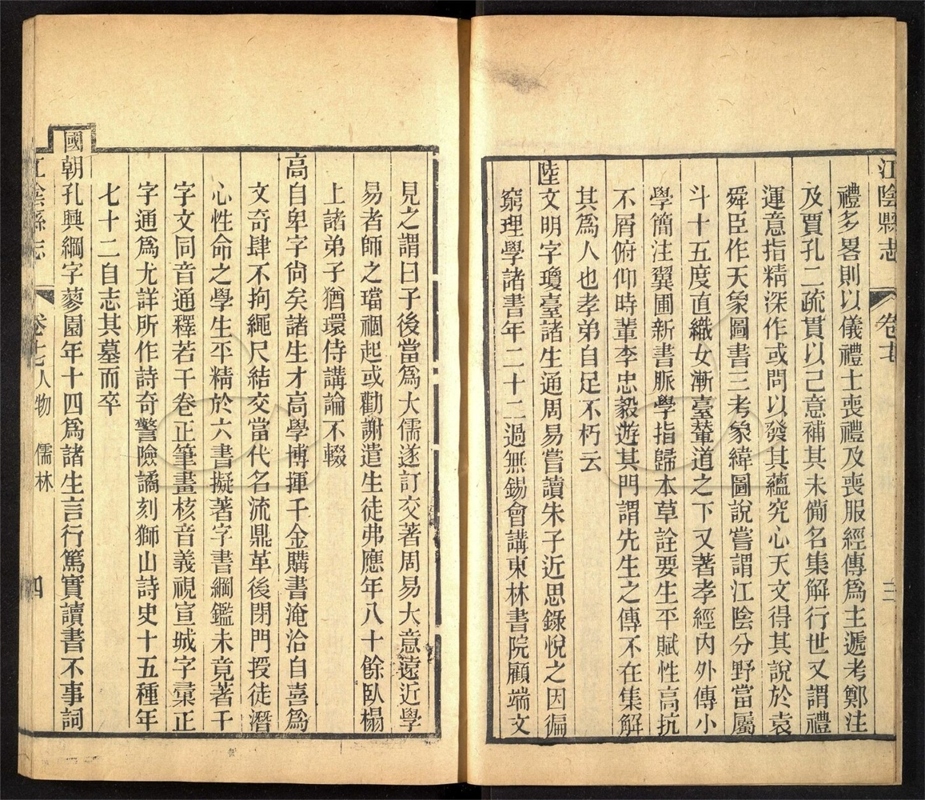 江陰縣志 卷十七 三
禮多畧則以儀禮士喪禮及喪服經傳爲主遞考鄭注
及賈孔二疏貫以己意補其未備名集解行世又謂禮
運意指精深作或問以發其蘊究心天文得其說於袁
舜臣作天象圖書三考象緯圖說嘗謂江陰分野當屬
斗十五度直織女漸臺輦道之下又著孝經內外傳小
學簡注翼圃新書脈學指歸本草詮要生平賦性高抗
不屑俯仰時輩李忠毅遊其門謂先生之傳不在集解
其爲人也孝弟自足不朽云
陸文明字瓊臺諸生通周易嘗讀朱子近思錄悅之因徧
窮理學諸書年二十二過無錫會講東林書院顧端文
見之謂曰子後當爲大儒遂訂交著周易大意遠近學
易者師之璫禍起或勸謝遣生徒弗應年八十餘臥榻
上諸弟子猶環侍講論不輟
高自卑字尙矣諸生才高學博揮千金購書淹洽自喜爲
文奇肆不拘繩尺結交當代名流鼎革後閉門授徒潛
心性命之學生平精於六書擬著字書綱鑑未竟著千
字文同音通釋若干卷正筆畫核音義視宣城字彙正
字通爲尤詳所作詩奇警險譎刻獅山詩史十五種年
七十二自志其墓而卒
國朝孔興綱字蓼園年十四爲諸生言行篤實讀書不事詞
江陰縣志 卷十七 人物 儒林 四